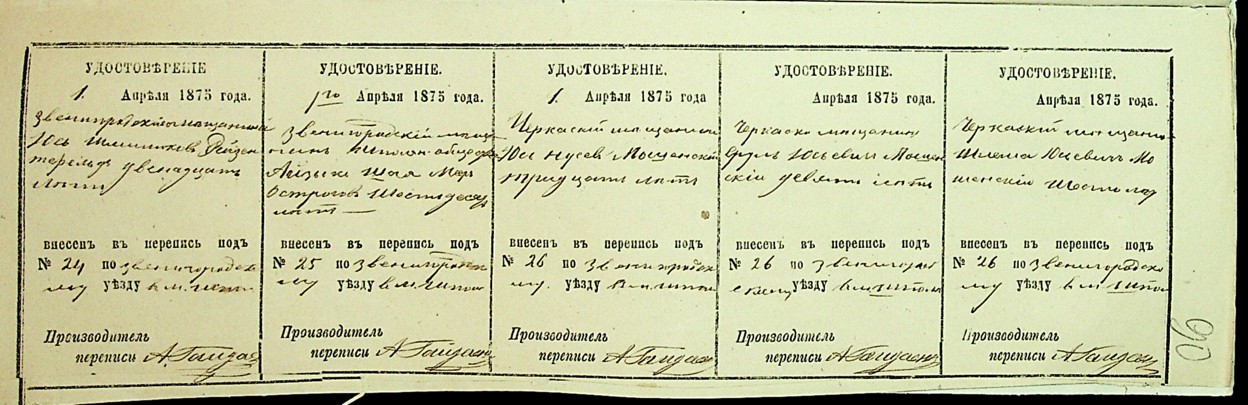 УДОСТОВѢРЕНІЕ
1. Апрѣля 1875 года.
Звенигородскій мещанинъ
Юсь
двенадцать
лѣтъ
внесенъ въ перепись подъ
№ 24 по Звенигородско
му уѣзду в м.
Производитель
переписи А Гайдас
УДОСТОВѢРЕНІЕ.
1го Апрѣля 1875 года.
Звенигородскій меща
нинъ
Айзыкъ Шая Мер
Острогъ Шестьдесят
лѣтъ
внесенъ въ перепись подъ
№ 25 по Звенигородско
му уѣзду в м. Шпола
Производитель
переписи А Гайдас
УДОСТОВѢРЕНІЕ.
1. Апрѣля 1875 года
Черкаскій мещанин
Юсь Нусев Мошенскій
тридцать лѣтъ
внесенъ въ перепись подъ
№ 26 по Звенигородско
му. уѣзду в м. Шпола
Производитель
переписи А Гайдас
УДОСТОВѢРЕНІЕ.
Апрѣля 1875 года.
Черкаскі мещанин
Сруль Юсьевич Мошен
скій девять лѣтъ
внесенъ въ перепись подъ
№ 26 по Звенигород
скому уѣзду в м. Шпола
Производитель
переписи А Гайдас
УДОСТОВѢРЕНІЕ.
Апрѣля 1875 года.
Черкаскій мещанин
Шлема Юсевич Мо
шенскій Шесть лѣт
внесенъ въ перепись подъ
№ 26 по Звенигородско
му уѣзду в м Шпола
Производитель
переписи А Гайдас
90